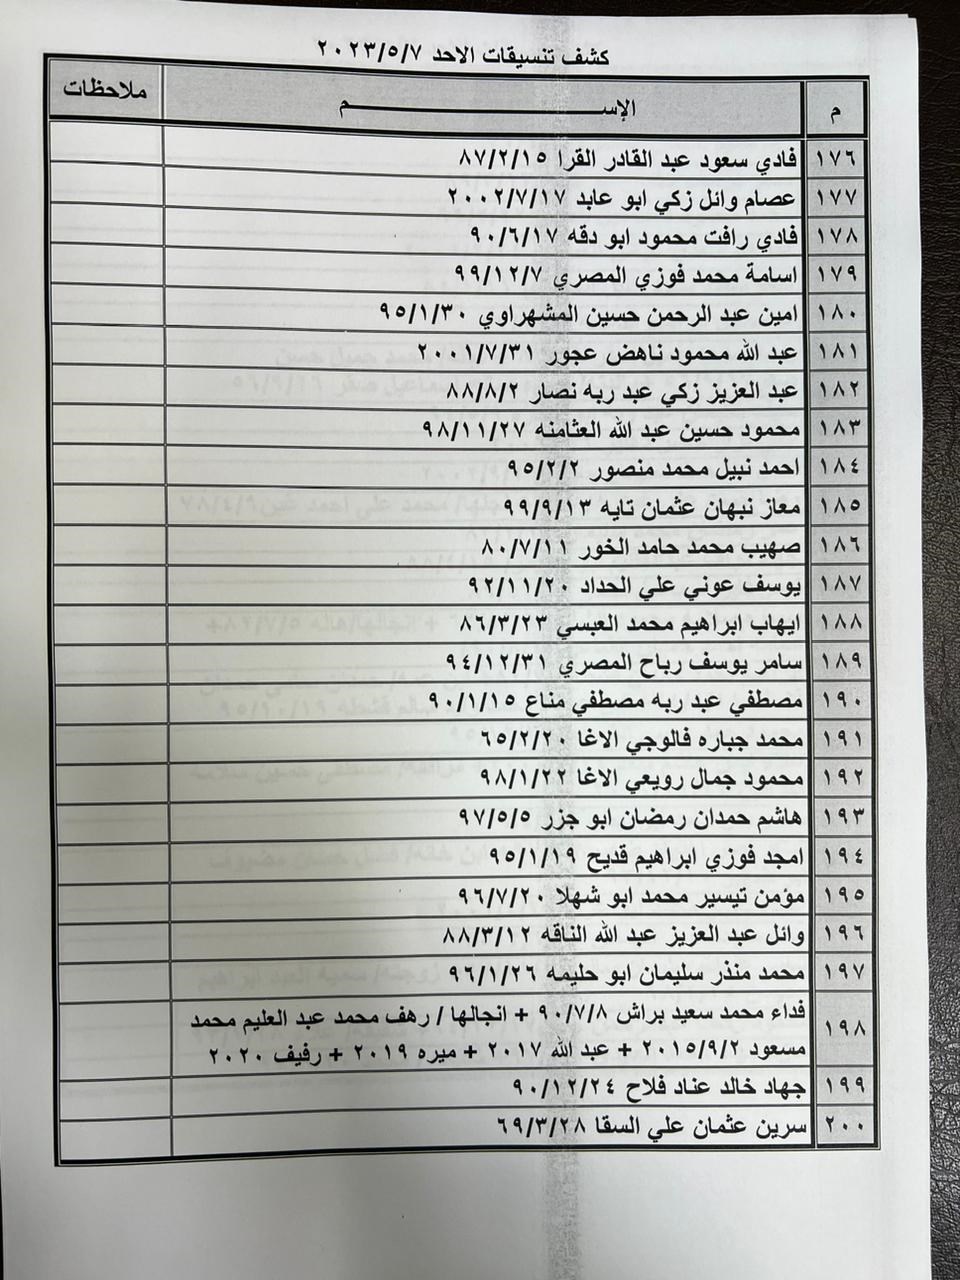 كشف تنسيقات الاحد ٢٠٢٣/٥/٧
م الإســـــم ملاحظات
١٧٦ فادي سعود عبد القادر القرا ٨٧/٢/١٥
١٧٧ عصام وائل زكي ابو عابد ٢٠٠٢/٧/١٧
١٧٨ فادي رافت محمود ابو دقه ٩٠/٦/١٧
١٧٩ اسامة محمد فوزي المصري ٩٩/١٢/٧
١٨٠ امين عبد الرحمن حسين المشهراوي ٩٥/١/٣٠
١٨١ عبد الله محمود ناهض عجور ٢٠٠١/٧/٣١
١٨٢ عبد العزيز زكي عبد ربه نصار ٨٨/٨/٢
١٨٣ محمود حسين عبد الله العثامنه ٩٨/١١/٢٧
١٨٤ احمد نبيل محمد منصور ٩٥/٢/٢
١٨٥ معاز نبهان عثمان تايه ٩٩/٩/١٣
١٨٦ صهيب محمد حامد الخور ٨٠/٧/١١
١٨٧ يوسف عوني علي الحداد ٩٢/١١/٢٠
١٨٨ ايهاب ابراهيم محمد العبسي ٨٦/٣/٢٣
١٨٩ سامر يوسف رباح المصري ٩٤/١٢/٣١
١٩٠ مصطفي عبد ربه مصطفي مناع ٩٠/١/١٥
١٩١ محمد جباره فالوجي الاغا ٦٥/٢/٢٠
١٩٢ محمود جمال رويعي الاغا ٩٨/١/٢٢
١٩٣ هاشم حمدان رمضان ابو جزر ٩٧/٥/٥
١٩٤ امجد فوزي ابراهيم قديح ٩٥/١/١٩
١٩٥ مؤمن تيسير محمد ابو شهلا ٩٦/٧/٢٠
١٩٦ وائل عبد العزيز عبد الله الناقه ٨٨/٣/١٢
١٩٧ محمد منذر سليمان ابو حليمه ٩٦/١/٢٦
١٩٨ فداء محمد سعيد براش ٩٠/٧/٨ + انجالها / رهف محمد عبد العليم محمد
مسعود ٢٠١٥/٩/٢ + عبد الله ٢٠١٧ + ميره ٢٠١٩ + رفيف ٢٠٢٠
١٩٩ جهاد خالد عناد فلاح ٩٠/١٢/٢٤
٢٠٠ سرين عثمان علي السقا ٦٩/٣/٢٨